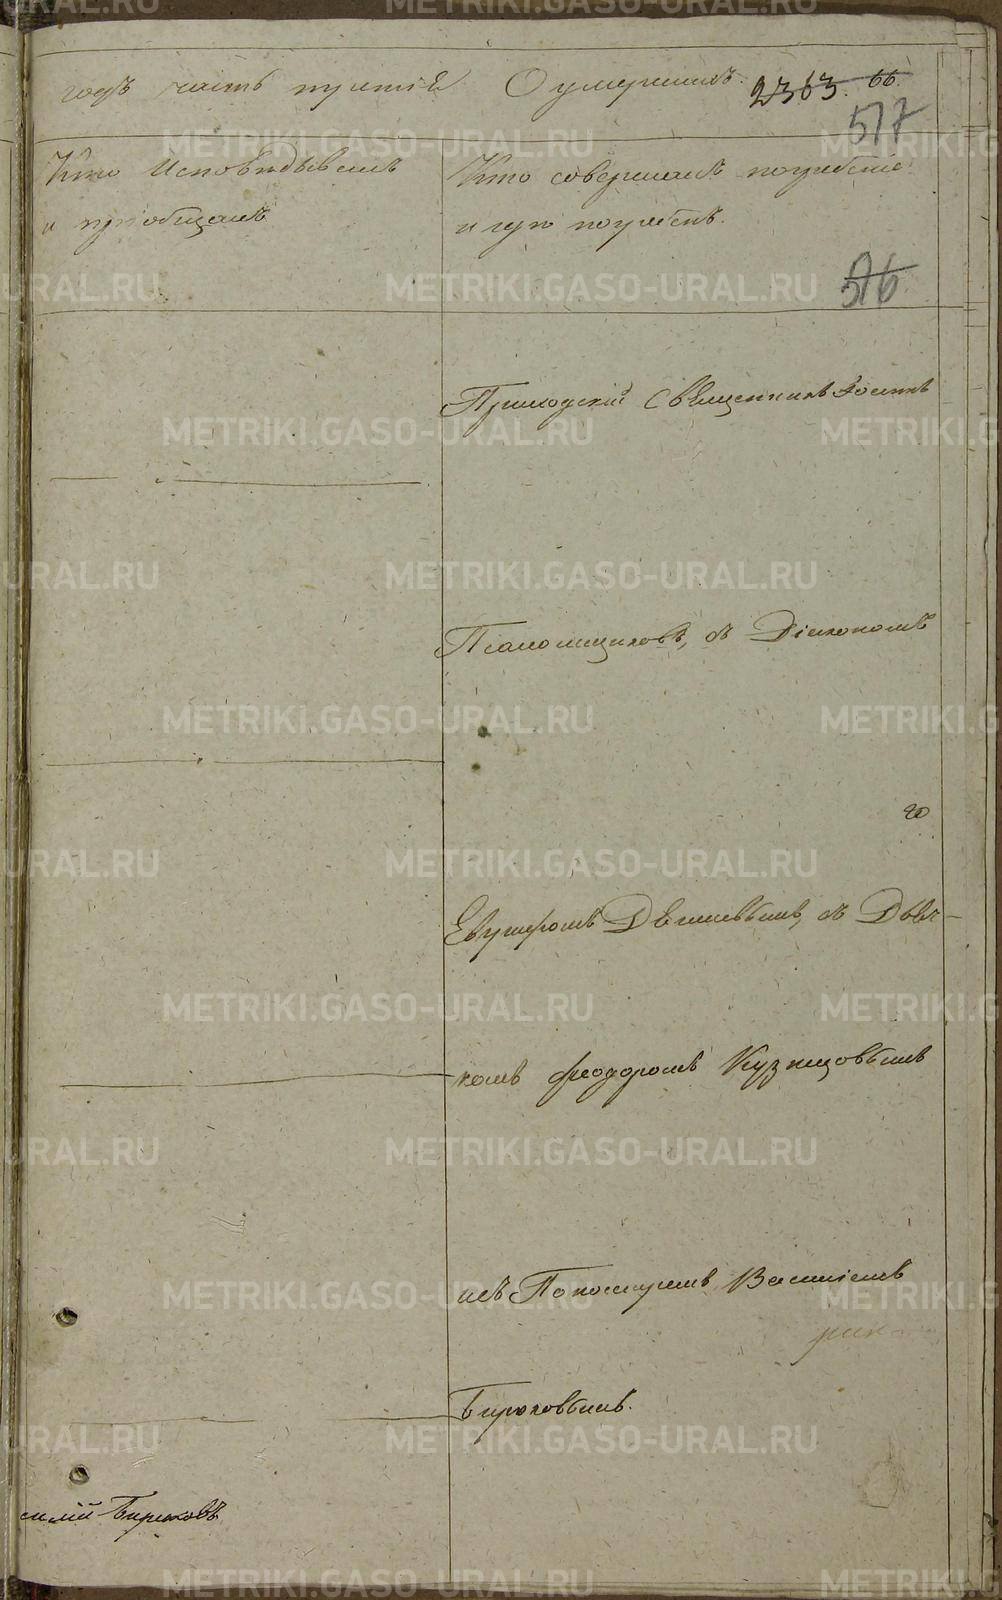 годъ часть третія О умершихъ. 2363. 66.
517
Кто исповѣдывалъ
и приобщалъ
Кто совершалъ погребеніе
и гдѣ погребенъ.
516
Приходскій Священникъ Іоаннъ
Псаломщиковъ, съ Діакономъ
Евграфомъ Дѣ
комъ Феодоромъ Кузнецовымъ
и съ Пономаремъ Василіемъ
Бирюковымъ.
силій Бирюковъ
METRIKI.GASO-URAL.RU